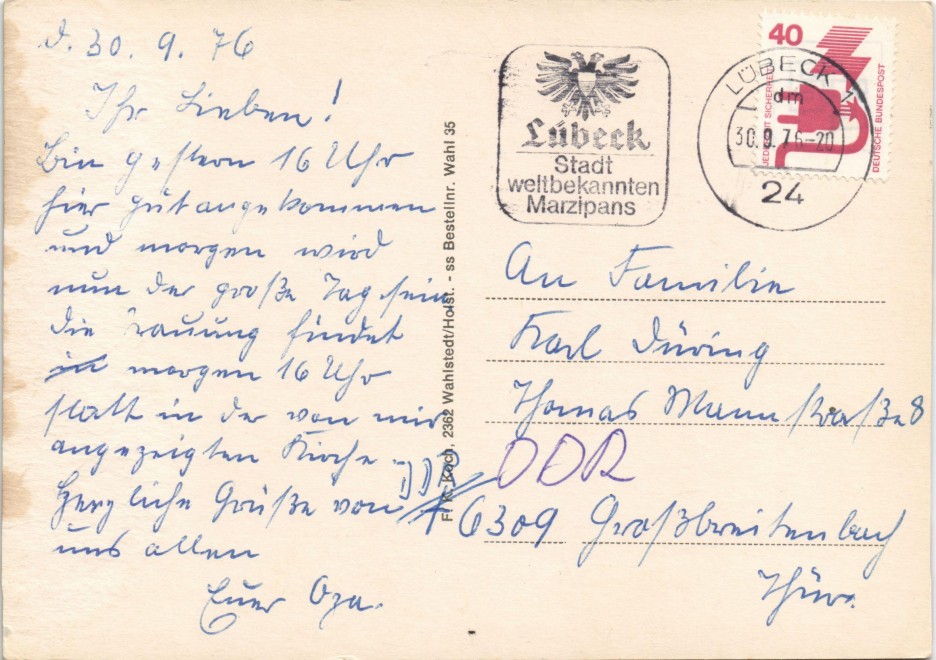 d. 30. 9. 76
Ihr Lieben!
Bin gestern 16 Uhr
hier gut angekommen
und morgen wird
nun der große Tag sein
die Trauung findet
morgen 16 Uhr
statt in der von mir
angezeigten Kirche.
Herzliche Grüße von
uns allen
Euer Opa.
Fr. K. Koch, 2362 Wahlstedt/Holst. - ss Bestellnr. Wahl 35
Lübeck
Stadt
weltbekannten
Marzipans
LÜBECK 1
dm
30.9.76-20
24
40
JEDERZEIT SICHERHEIT
DEUTSCHE BUNDESPOST
An Familie
Karl Düring
Thomas Mann straße 8
DDR
DDR
6309 Großbreitenbach
Thür.